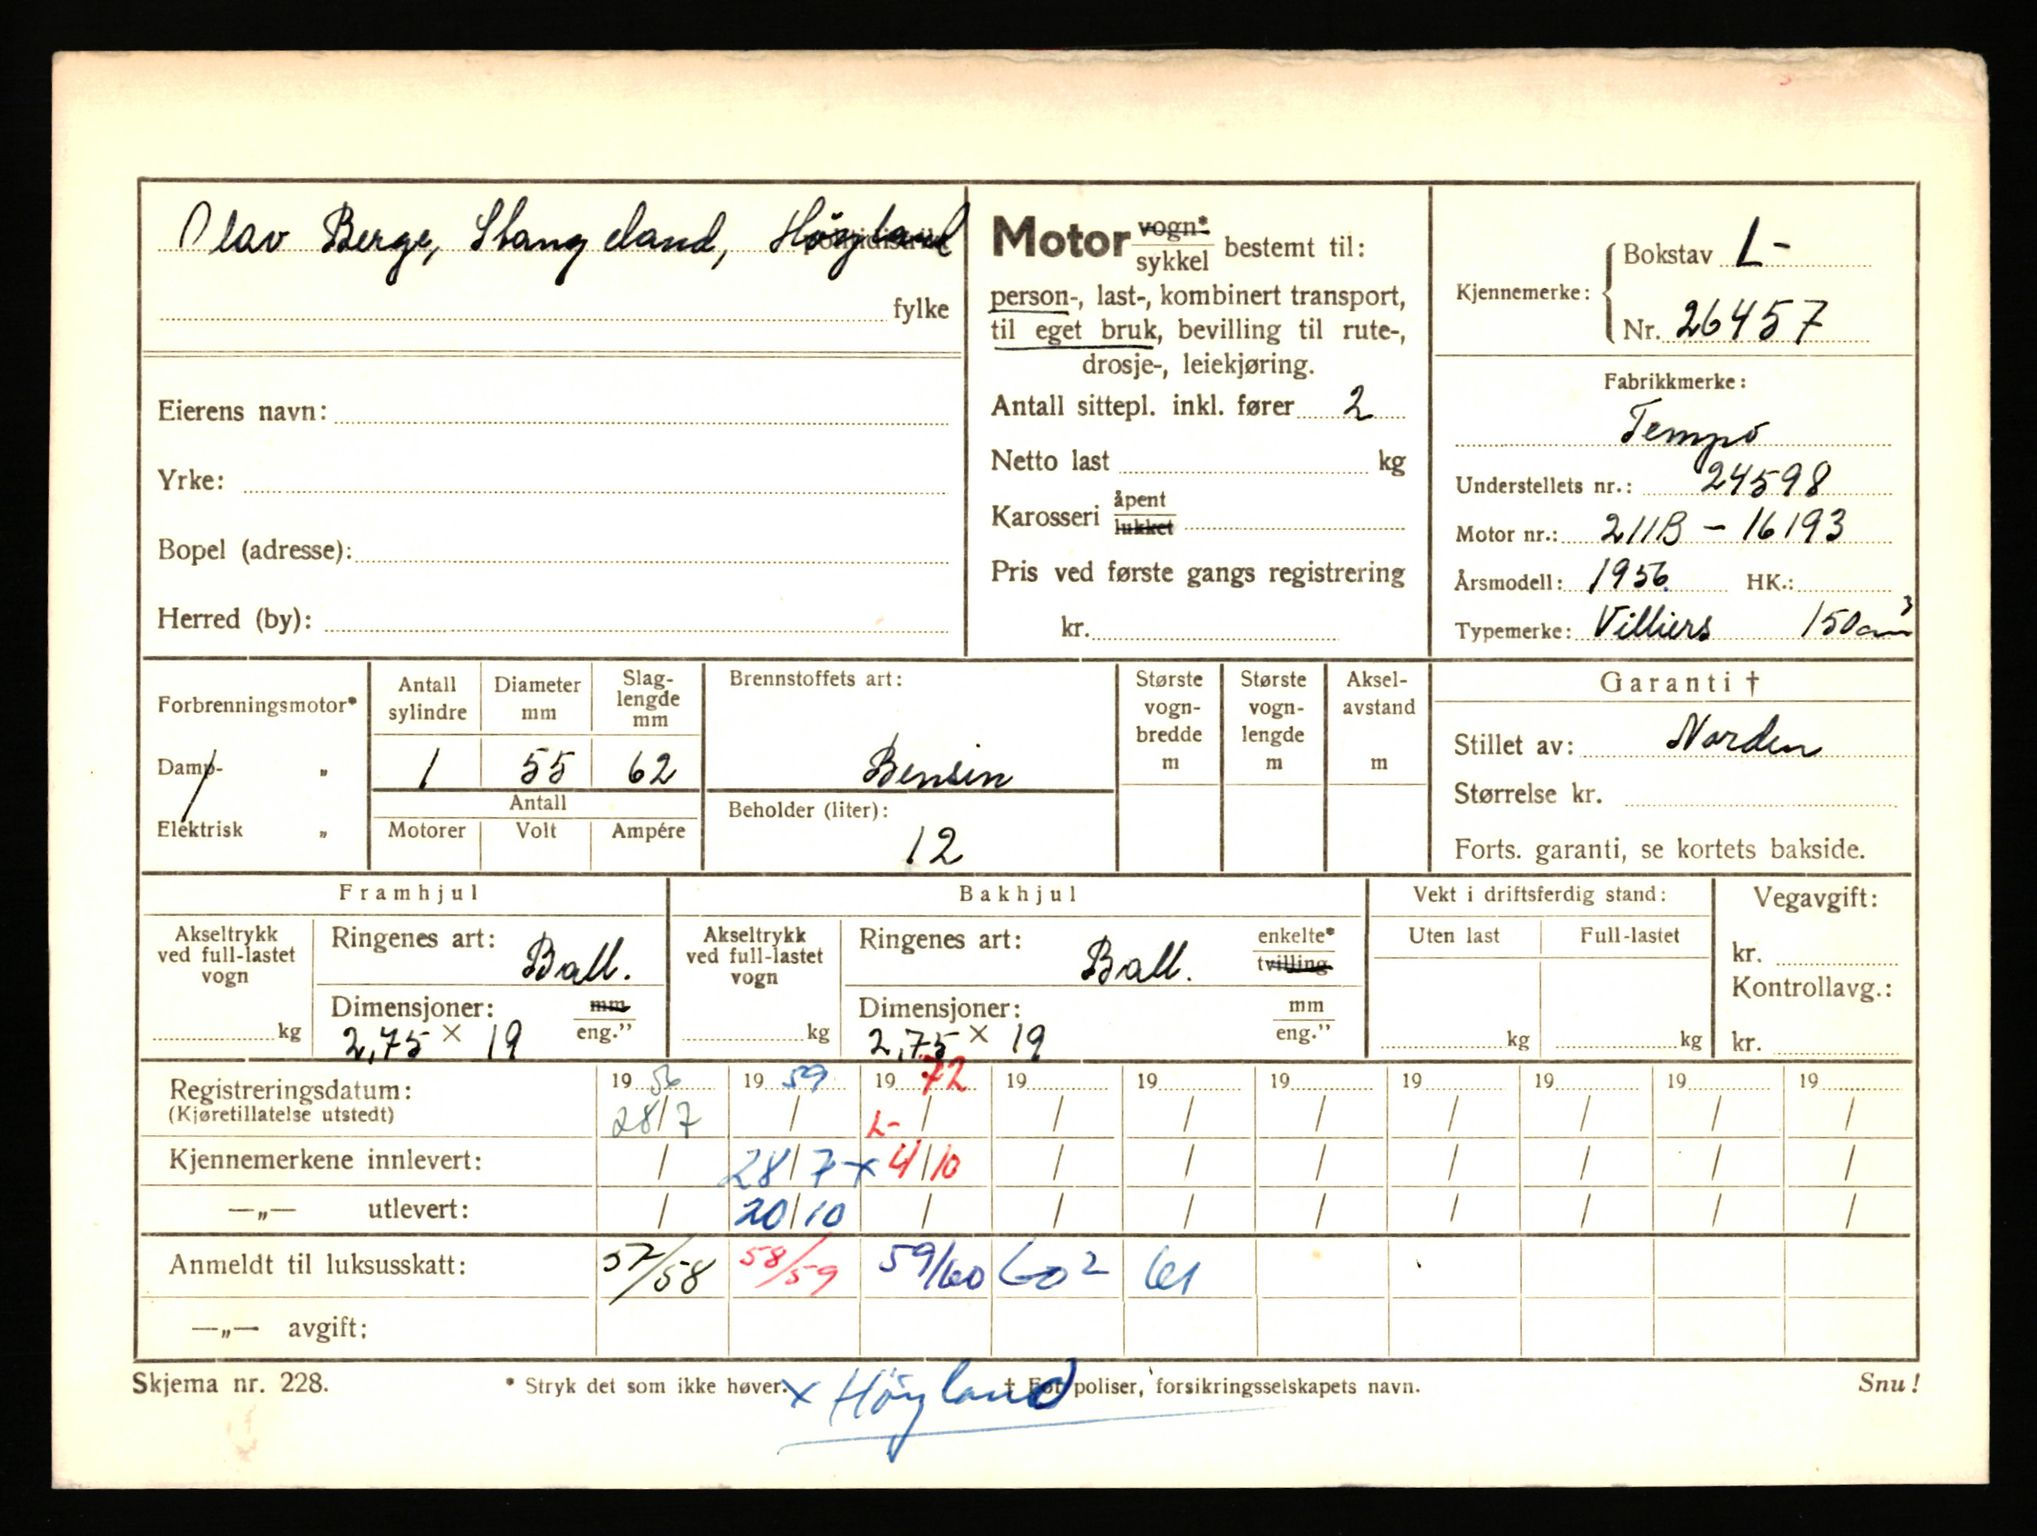 Olav Berge, Stangeland, Høyland
fylke
Eierens navn:
Yrke:
Bopel (adresse):
Herred (by):
Motor vogn* sykkel bestemt til:
person-, last-, kombinert transport,
til eget bruk, bevilling til rute-,
drosje-, leiekjøring.
Antall sittepl. inkl. fører 2
Netto last kg
Karosseri åpent lukket
Pris ved første gangs registrering
kr.
Kjennemerke: Bokstav L-
Nr. 26457
Fabrikkmerke:
Tempo
Understellets nr.: 24598
Motor nr.: 211B - 16193
Årsmodell: 1956 HK.:
Typemerke: Villiers 150 cm³
Forbrenningsmotor*
Damp- „
Elektrisk „
Antall sylindre Diameter mm Slaglengde mm
1 55 62
Antall
Motorer Volt Ampére
Brennstoffets art:
Bensin
Beholder (liter):
12
Største vognbredde m
Største vognlengde m
Akselavstand m
Garanti †
Stillet av: Norden
Størrelse kr.
Forts. garanti, se kortets bakside.
Framhjul
Akseltrykk ved full-lastet vogn kg
Ringenes art: Ball.
Dimensjoner: mm eng.”
2,75 × 19
Bakhjul
Akseltrykk ved full-lastet vogn kg
Ringenes art: Ball. enkelte* tvilling
Dimensjoner: mm eng.”
2,75 × 19
Vekt i driftsferdig stand:
Uten last Full-lastet
kg kg
Vegavgift:
kr.
Kontrollavg.:
kr.
Registreringsdatum: 19 56 19 59 19 72 19 19 19 19 19 19 19
(Kjøretillatelse utstedt) 28/7 / L- / / / / / / / /
Kjennemerkene innlevert: / 28/7 x 4/10 / / / / / / /
—„— utlevert: / 20/10 / / / / / / / /
Anmeldt til luksusskatt: 57/58 58/59 59/60 60² 61
—„— avgift:
Skjema nr. 228. * Stryk det som ikke høver. † For poliser, forsikringsselskapets navn. Snu!
x Høyland